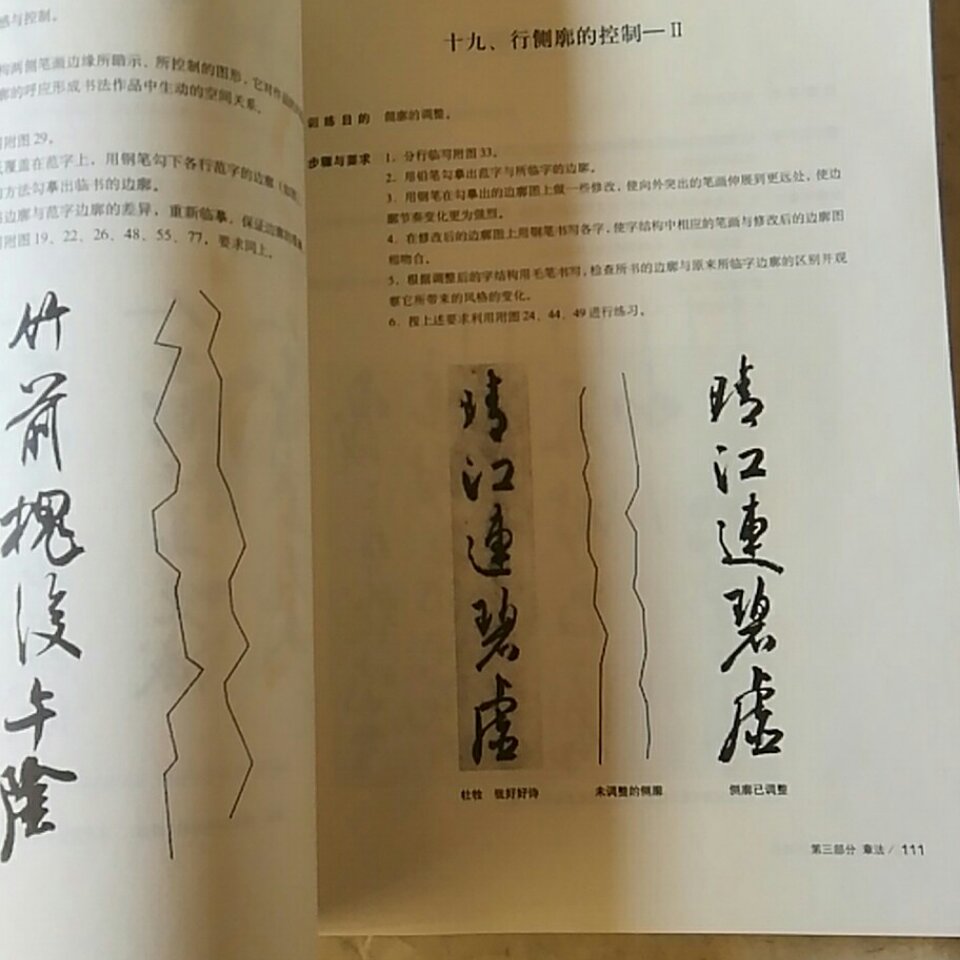 感与控制。
构两侧笔画边缘所暗示、所控制的图形，它对作品的
廓的呼应形成书法作品中生动的空间关系。
附图29。
覆盖在范字上，用钢笔勾下各行范字的边廓
方法勾摹出临书的边廓。
边廓与范字边廓的差异，重新临摹，保证边廓的准确
附图19、22、26、48、55、77，要求同上。
竹
前
槐
没
午
阴
十九、行侧廓的控制—Ⅱ
训练目的 侧廓的调整。
步骤与要求 1．分行临写附图33。
2．用铅笔勾摹出范字与所临字的边廓。
3．用钢笔在勾摹出的边廓图上做一些修改，使向外突出的笔画伸展到更远处，使边
廓节奏变化更为强烈。
4．在修改后的边廓图上用钢笔书写各字，使字结构中相应的笔画与修改后的边廓图
相吻合。
5．根据调整后的字结构用毛笔书写，检查所书的边廓与原来所临字边廓的区别并观
察它所带来的风格的变化。
6．按上述要求利用附图24、44、49进行练习。
晴
江
連
碧
虚
晴
江
連
碧
虚
杜牧 张好好诗
未调整的侧廓
侧廓已调整
第三部分 章法 / 111